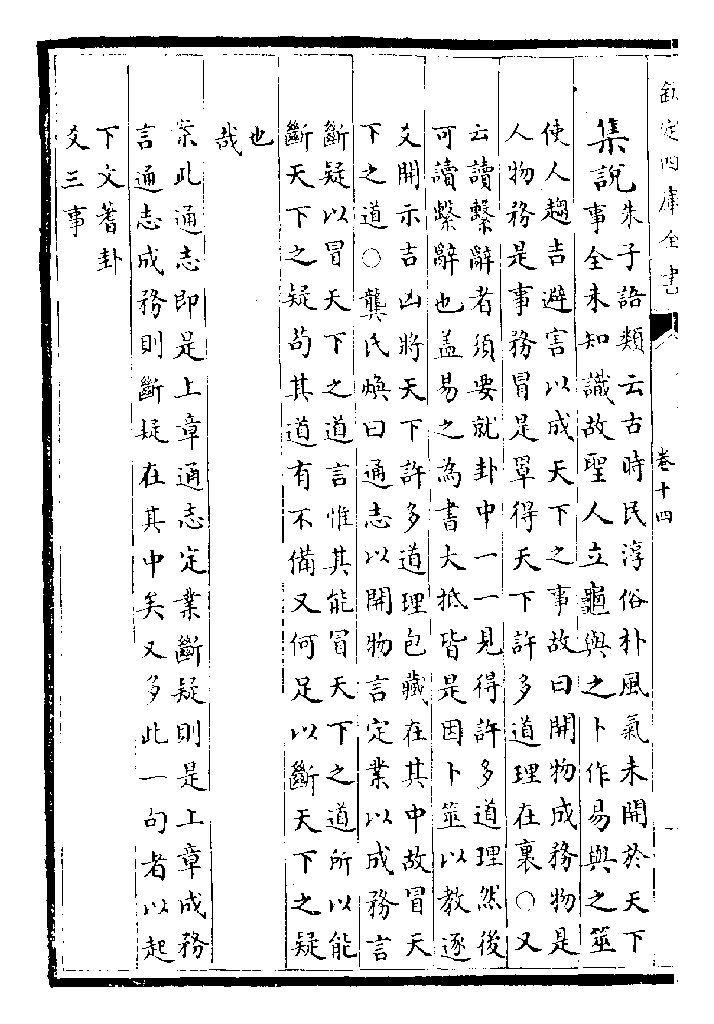 欽定四庫全書
卷十四
集說
朱子語類云古時民淳俗朴風氣未開於天下
事全未知識故聖人立龜與之卜作易與之筮
使人趨吉避害以成天下之事故曰開物成務物是
人物務是事務冒是罩得天下許多道理在裏○又
云讀繫辭者須要就卦中一一見得許多道理然後
可讀繫辭也盖易之為書大抵皆是因卜筮以教逐
爻開示吉凶將天下許多道理包藏在其中故冒天
下之道○龔氏煥曰通志以開物言定業以成務言
斷疑以冒天下之道言惟其能冒天下之道所以能
斷天下之疑苟其道有不備又何足以斷天下之疑
也
哉
案此通志即是上章通志定業斷疑則是上章成務
言通志成務則斷疑在其中矣又多此一句者以起
下文蓍卦
爻三事